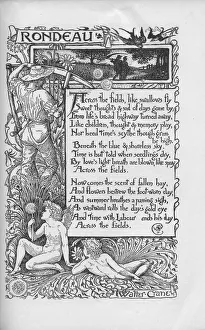 RONDEAU
Across the fields, like swallows fly
Sweet thoughts & sad of days gone by
From life's broad highway turned away,
Like children, thought & memory play,
Nor heed Time's scythe though grass
be high.
Beneath the blue & shoreless sky
Time is but told when seedlings dry
By love's light breath are blown, like spray
Across the fields.
Now comes the scent of fallen hay,
And flowers bestrew the foot-worn clay,
And summer breathes a passing sigh,
As westward rolls the day's gold eye
And Time with Labour ends his day
Across the fields.
Walter Crane